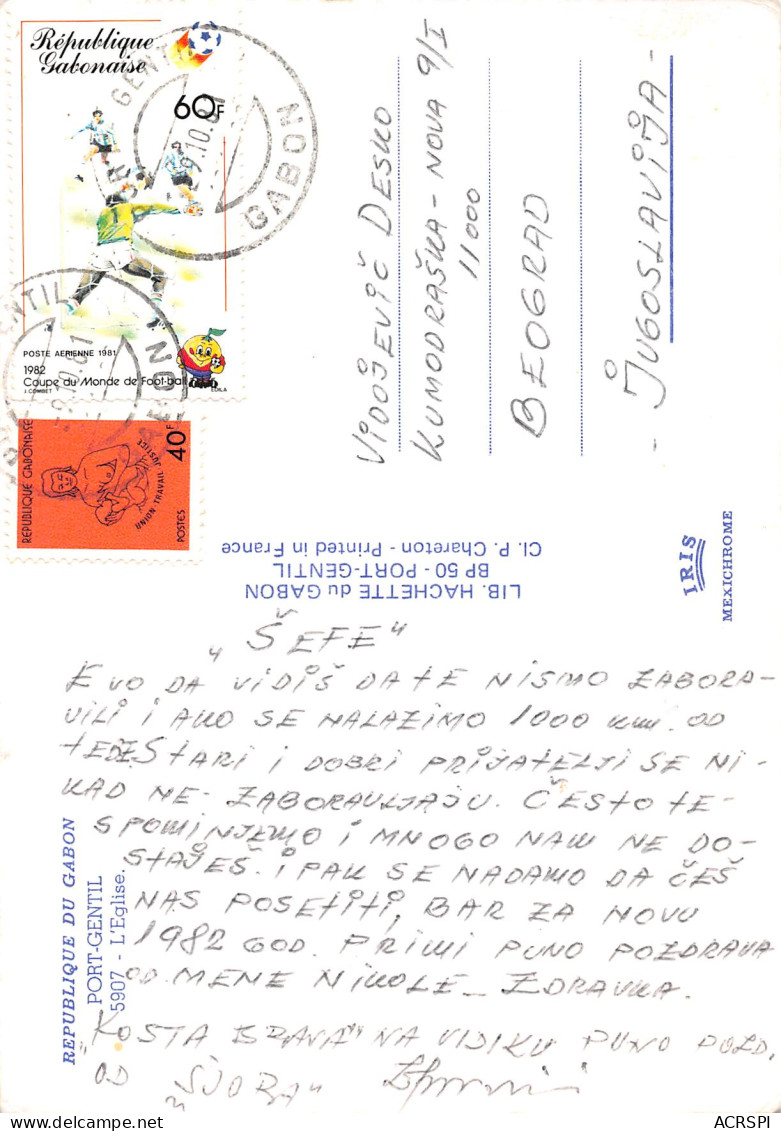 République
Gabonaise
60F
PORT GENTIL
29.10.81
GABON
POSTE AERIENNE 1981
1982
Coupe du Monde de Foot-ball
J. COMBET
EDILA
REPUBLIQUE GABONAISE
40F
UNION TRAVAIL JUSTICE
POSTES
VIDOJEVIČ DESKO
KUMODRAŠKA - NOVA 9/I
11000
BEOGRAD
- JUGOSLAVIJA -
LIB. HACHETTE du GABON
BP 50 - PORT-GENTIL
Cl. P. Chareton - Printed in France
IRIS
MEXICHROME
REPUBLIQUE DU GABON
PORT-GENTIL
5907 - L'Eglise.
„ŠEFE"
EVO DA VIDIŠ DA TE NISMO ZABORA-
VILI I AKO SE NALAZIMO 1000 km. OD
TEBE. STARI I DOBRI PRIJATELJI SE NI-
KAD NE ZABORAVLJAJU. ČESTO TE-
SPOMINJEMO I MNOGO NAM NE DO-
STAJEŠ. IPAK SE NADAMO DA ČEŠ
NAS POSETITI, BAR ZA NOVU
1982 GOD. PRIMI PUNO POZDRAVA
OD MENE NIKOLE - ZDRAVKA.
„KOSTA BRAVA" NA VIDIKU PUNO POZD.
OD
ACRSPI